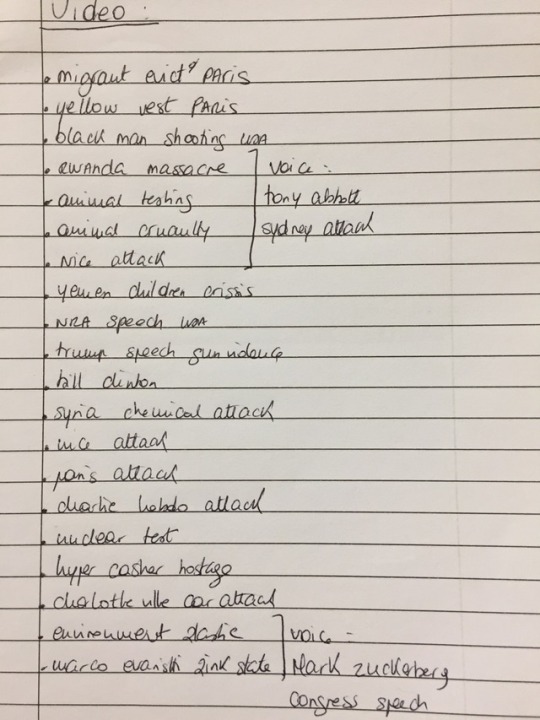 Video :
• migrant evict° PARIS
• yellow vest PARIS
• black man shooting USA
• Rwanda massacre
• animal testing
• animal cruaulty
• Nice attack
voice :
tony abbott
sydney attack
• yemen children crisis
• NRA speech USA
• trump speech gun violence
• bill clinton
• syria chemical attack
• nice attack
• paris attack
• charlie hebdo attack
• nuclear test
• hyper casher hostage
• charlotte ville car attack
• environment plastic
- marco evaristti pink state
voice :
Mark zuckerberg
congress speech